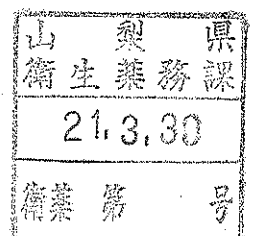 山梨県
衛生薬務課
21.3.30
衛薬第 号